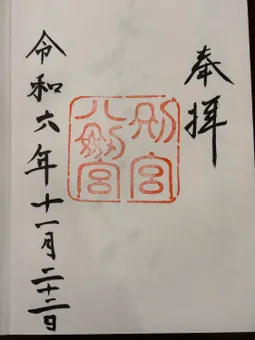 奉拝
別宮
八剣宮
令和六年十一月二十二日